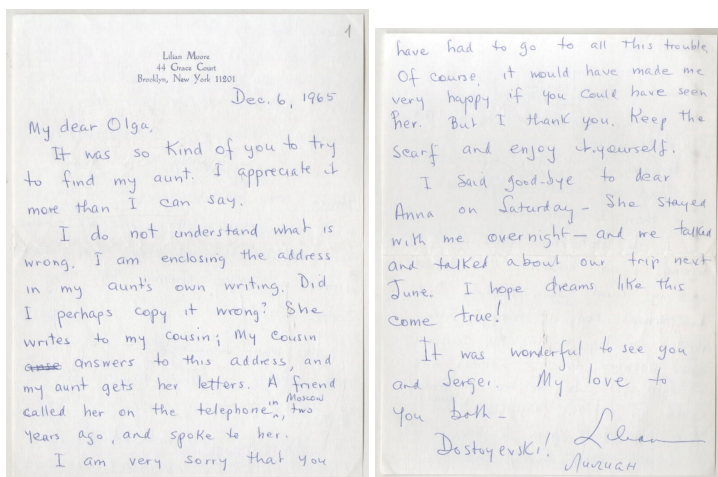 1
Lilian Moore
44 Grace Court
Brooklyn, New York 11201
Dec. 6, 1965
My dear Olga,
It was so kind of you to try
to find my aunt. I appreciate it
more than I can say.
I do not understand what is
wrong. I am enclosing the address
in my aunt's own writing. Did
I perhaps copy it wrong? She
writes to my cousin; My cousin
answers to this address, and
my aunt gets her letters. A friend
called her on the telephone in Moscow, two
years ago, and spoke to her.
I am very sorry that you
have had to go to all this trouble
Of course, it would have made me
very happy if you could have seen
her. But I thank you. Keep the
scarf and enjoy it yourself.
I said good-bye to dear
Anna on Saturday – She stayed
with me overnight – and we talked
and talked about our trip next
June. I hope dreams like this
come true!
It was wonderful to see you
and Sergei. My love to
you both –
Dostoyevski! Lilian
Лилиан